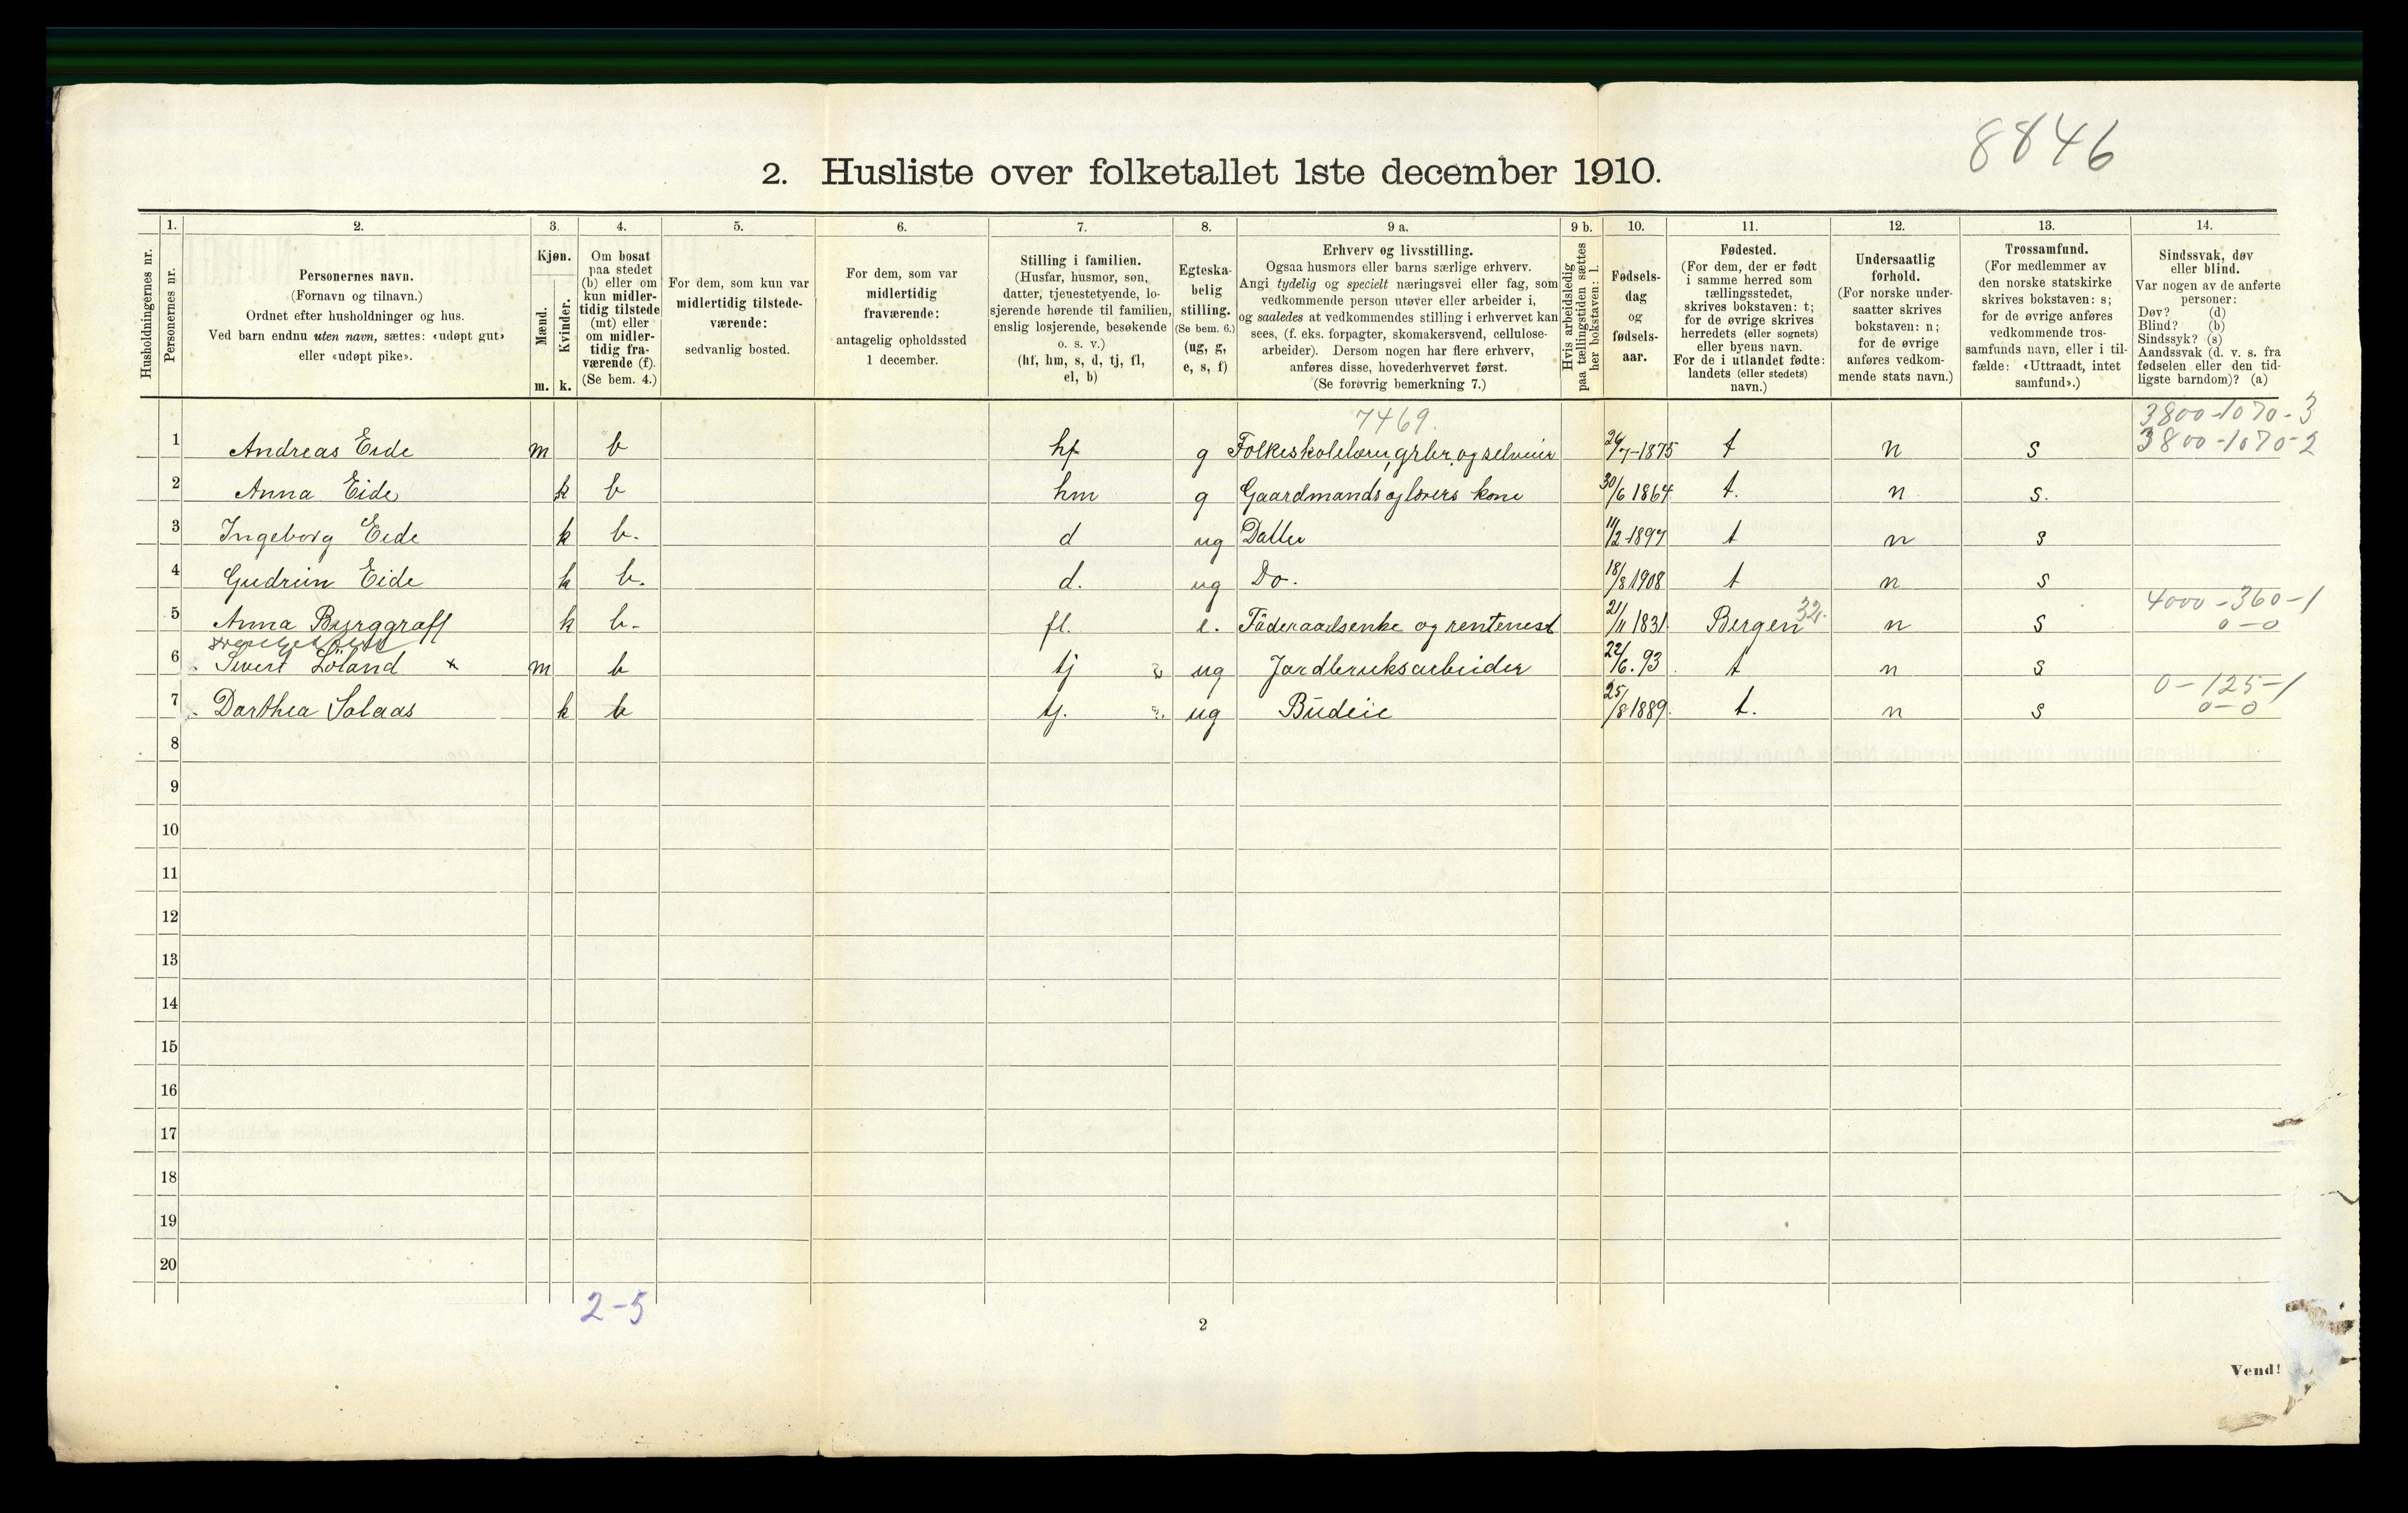 8846
2. Husliste over folketallet 1ste december 1910.
Husholdningernes nr.
1.
Personernes nr.
2.
Personernes navn.
(Fornavn og tilnavn.)
Ordnet efter husholdninger og hus.
Ved barn endnu uten navn, sættes: «udøpt gut»
eller «udøpt pike».
3.
Kjøn.
Mænd.
Kvinder.
m. k.
4.
Om bosat
paa stedet
(b) eller om
kun midler-
tidig tilstede
(mt) eller
om midler-
tidig fra-
værende (f).
(Se bem. 4.)
5.
For dem, som kun var
midlertidig tilstede-
værende:
sedvanlig bosted.
6.
For dem, som var
midlertidig
fraværende:
antagelig opholdssted
1 december.
7.
Stilling i familien.
(Husfar, husmor, søn,
datter, tjenestetyende, lo-
sjerende hørende til familien,
enslig losjerende, besøkende
o. s. v.)
(hf, hm, s, d, tj, fl,
el, b)
8.
Egteska-
belig
stilling.
(Se bem. 6.)
(ug, g,
e, s, f)
9 a.
Erhverv og livsstilling.
Ogsaa husmors eller barns særlige erhverv.
Angi tydelig og specielt næringsvei eller fag, som
vedkommende person utøver eller arbeider i,
og saaledes at vedkommendes stilling i erhvervet kan
sees, (f. eks. forpagter, skomakersvend, cellulose-
arbeider). Dersom nogen har flere erhverv,
anføres disse, hovederhvervet først.
(Se forøvrig bemerkning 7.)
9 b.
Hvis arbeidsledig
paa tællingstiden sættes
her bokstaven: l.
10.
Fødsels-
dag
og
fødsels-
aar.
11.
Fødested.
(For dem, der er født
i samme herred som
tællingsstedet,
skrives bokstaven: t;
for de øvrige skrives
herredets (eller sognets)
eller byens navn.
For de i utlandet fødte:
landets (eller stedets)
navn.)
12.
Undersaatlig
forhold.
(For norske under-
saatter skrives
bokstaven: n;
for de øvrige
anføres vedkom-
mende stats navn.)
13.
Trossamfund.
(For medlemmer av
den norske statskirke
skrives bokstaven: s;
for de øvrige anføres
vedkommende tros-
samfunds navn, eller i til-
fælde: «Uttraadt, intet
samfund».)
14.
Sindssvak, døv
eller blind.
Var nogen av de anførte
personer:
Døv? (d)
Blind? (b)
Sindssyk? (s)
Aandssvak (d. v. s. fra
fødselen eller den tid-
ligste barndom)? (a)
7469. 3800-1070-3
1 Andreas Eide m b hf g Folkeskolelærer, grbr. og selveier 26/7-1875 t n s 3800-1070-2
2 Anna Eide k b hm g Gaardmands og lærers kone 30/6 1864 t. n s.
3 Ingeborg Eide k b. d ug Datter 11/2-1897 t n s
4 Gudrun Eide k b. d. ug Do. 18/8 1908 t n s
4000-360-1
5 Anna Burggraff k b. fl. e. Föderaadsenke og rentenest 21/11 1831. Bergen 32. n s 0-0
6 Sivert Löland x m b tj ug Jordbruksarbeider 22/6. 93 t n s
0-125-1
7 Dorthea Solaas k b tj. ug Budeie 25/8 1889. t. n s 0-0
8
9
10
11
12
13
14
15
16
17
18
19
20
2-5
2
Vend!